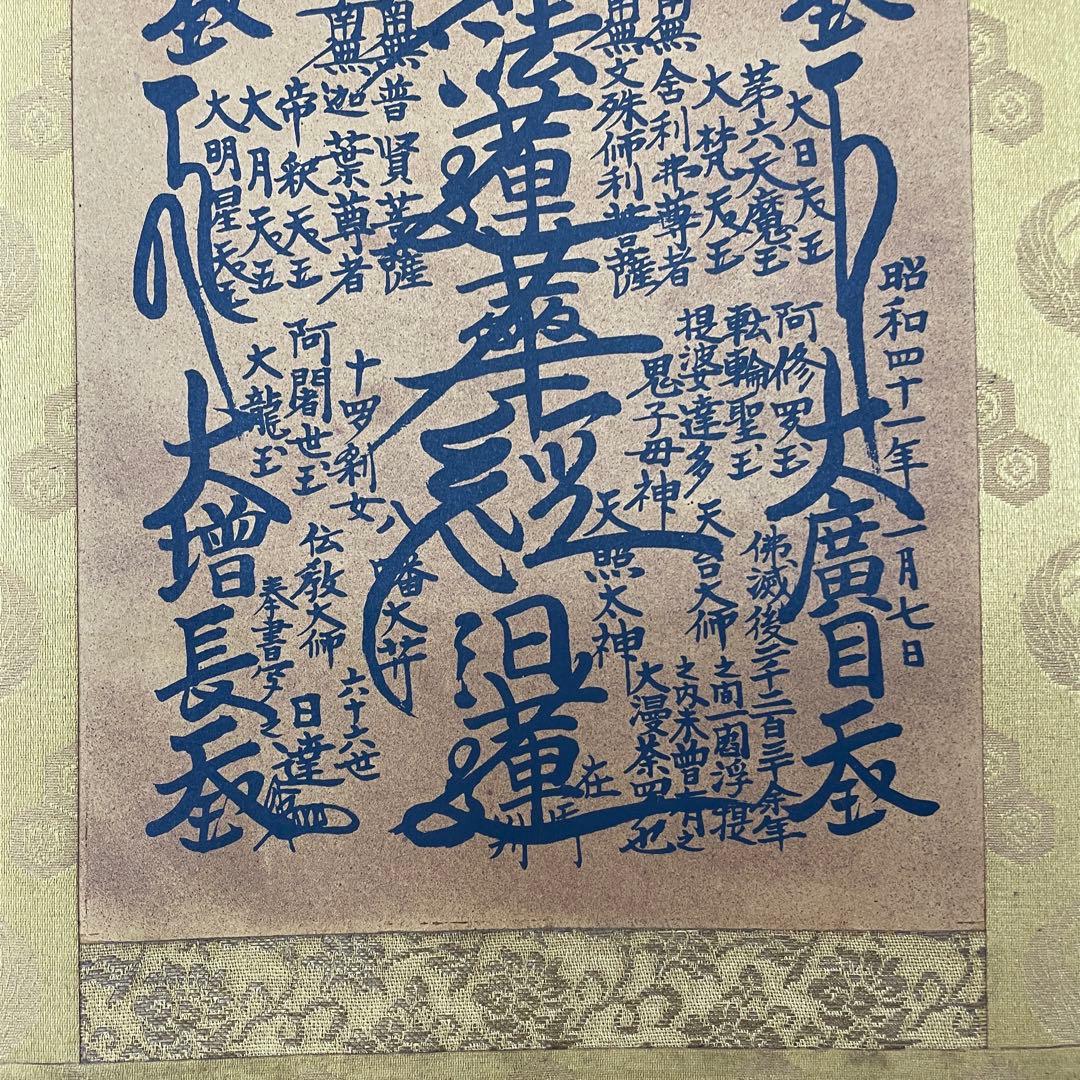 昭和四十一年一月七日
大廣目天王
大日天王
第六天魔王
大梵天王
南無舍利弗尊者
南無文殊師利菩薩
阿修罗王
転輪聖王
提婆達多
鬼子母神
佛滅後二千二百三十余年
之間一閻浮提
之内未曾有之
大漫荼羅也
天台大师
天照太神
法蓮華経
日蓮
在御判
南無普賢菩薩
南無迦葉尊者
帝釈天王
大月天王
大明星天王
十罗刹女
阿闍世王
大龍王
八幡大菩薩
伝教大师
六十六世
日達
奉書写之
大増長天王